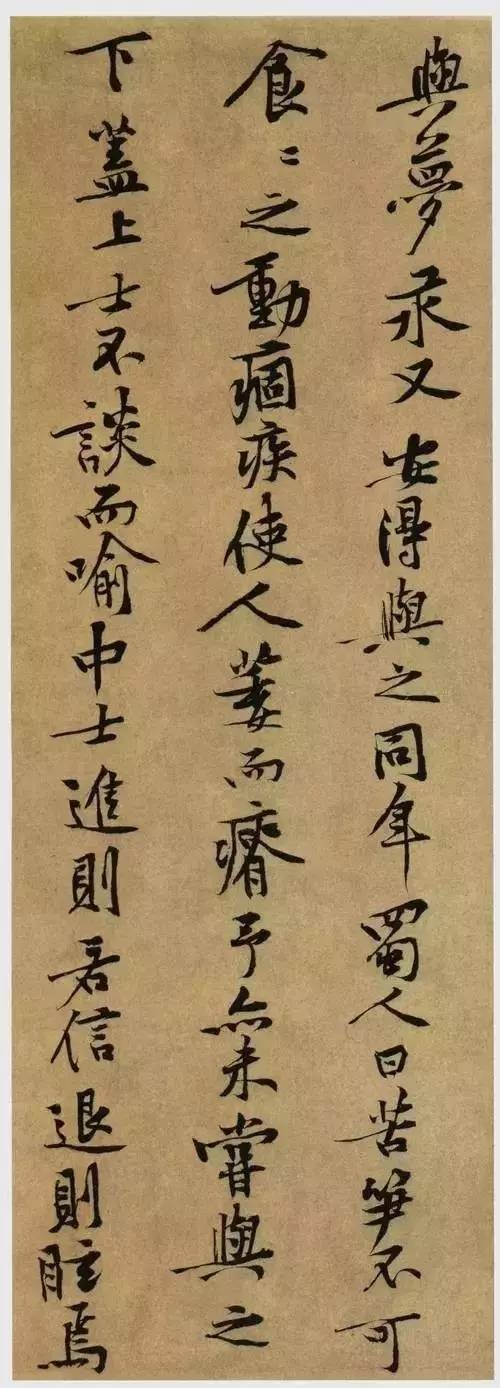 與夢永又安得與之同年蜀人曰苦笋不可
食〻之動痼疾使人萎而瘠予亦未嘗與之
下蓋上士不談而喻中士進則若信退則眩焉